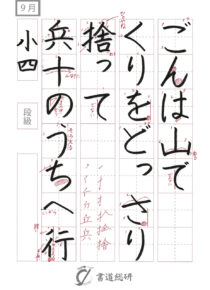 9月
小四
段級
ごんは山で
くりをどっさり
捨って
兵十のうちへ行
書道総研